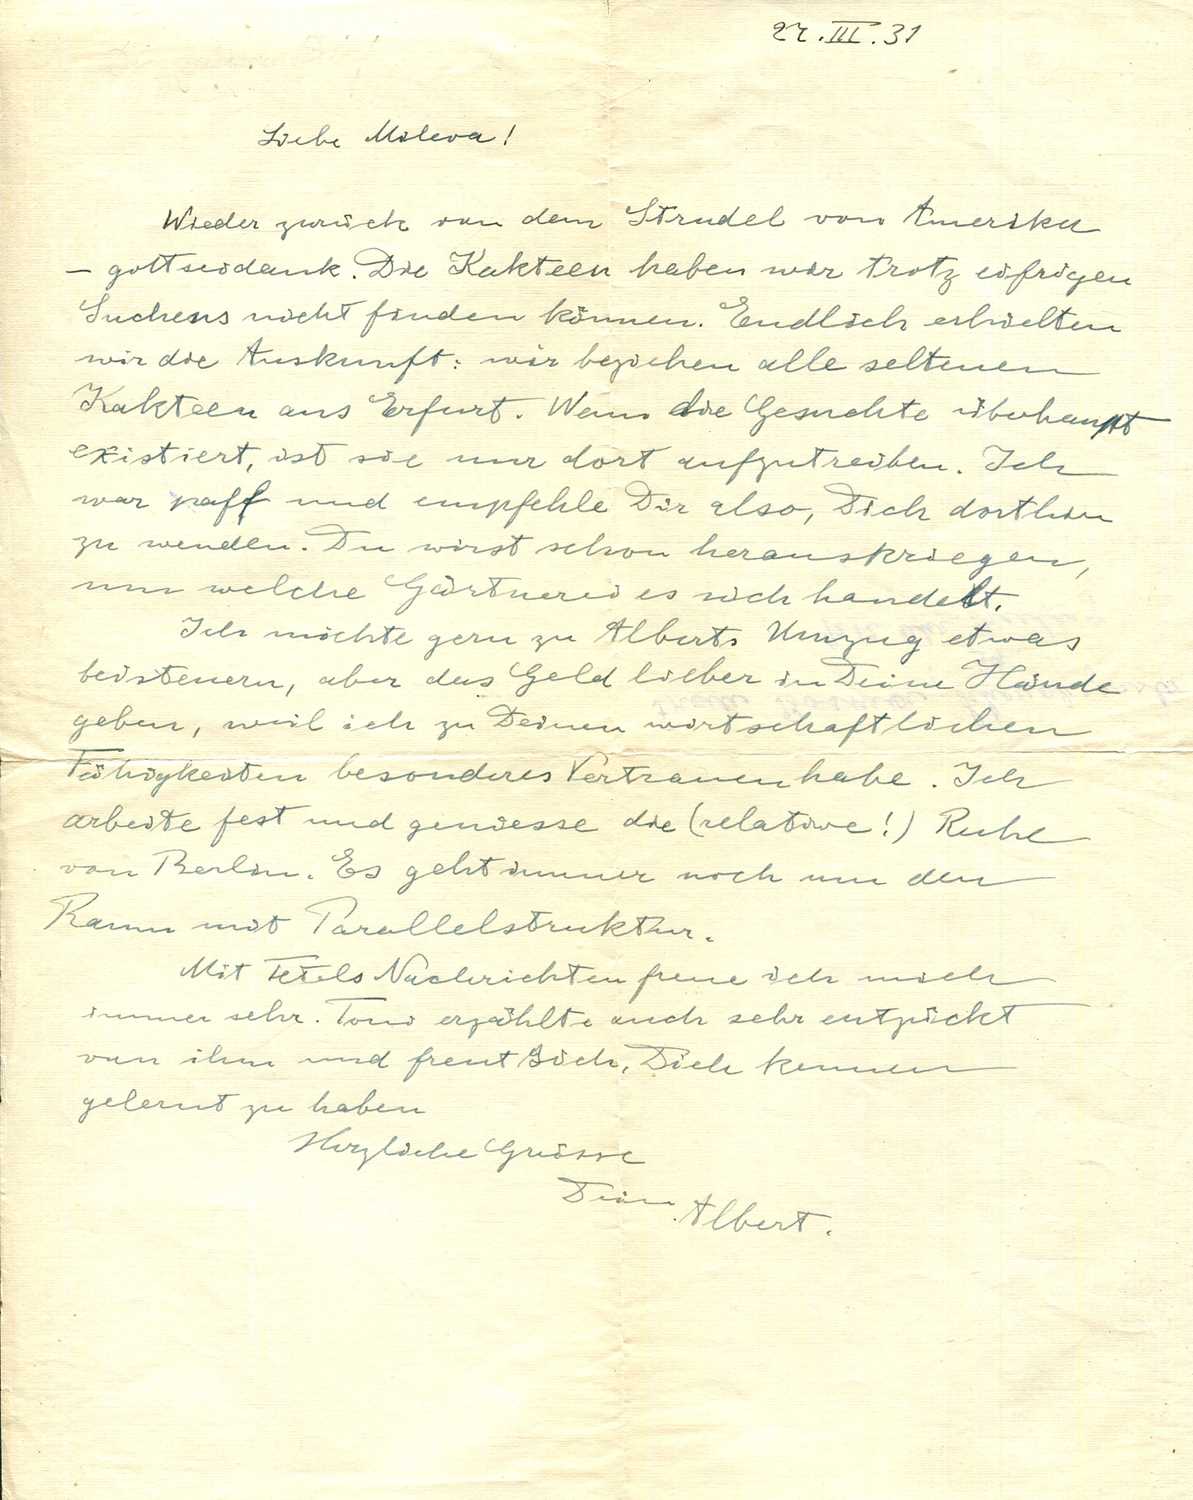 27.III.31
Liebe Mileva!
Wieder zurück von dem Strudel von Amerika
– gottseidank. Die Kakteen haben wir trotz eifrigen
Suchens nicht finden können. Endlich erhielten
wir die Auskunft: wir beziehen alle seltenen
Kakteen aus Erfurt. Wenn die Gesuchte überhaupt
existiert, ist sie nur dort aufzutreiben. Ich
war paff und empfehle Dir also, Dich dorthin
zu wenden. Du wirst schon herauskriegen,
um welche Gärtnerei es sich handelt.
Ich möchte gern zu Alberts Umzug etwas
beisteuern, aber das Geld lieber in Deine Hände
geben, weil ich zu Deinen wirtschaftlichen
Fähigkeiten besonderes Vertrauen habe. Ich
arbeite fest und geniesse die (relative!) Ruhe
von Berlin. Es geht immer noch um den
Raum mit Parallelstruktur.
Mit Tetels Nachrichten freue ich mich
immer sehr. Toni erzählte auch sehr entzückt
von ihm und freut sich, Dich kennen
gelernt zu haben
Herzliche Grüsse
Dein Albert.